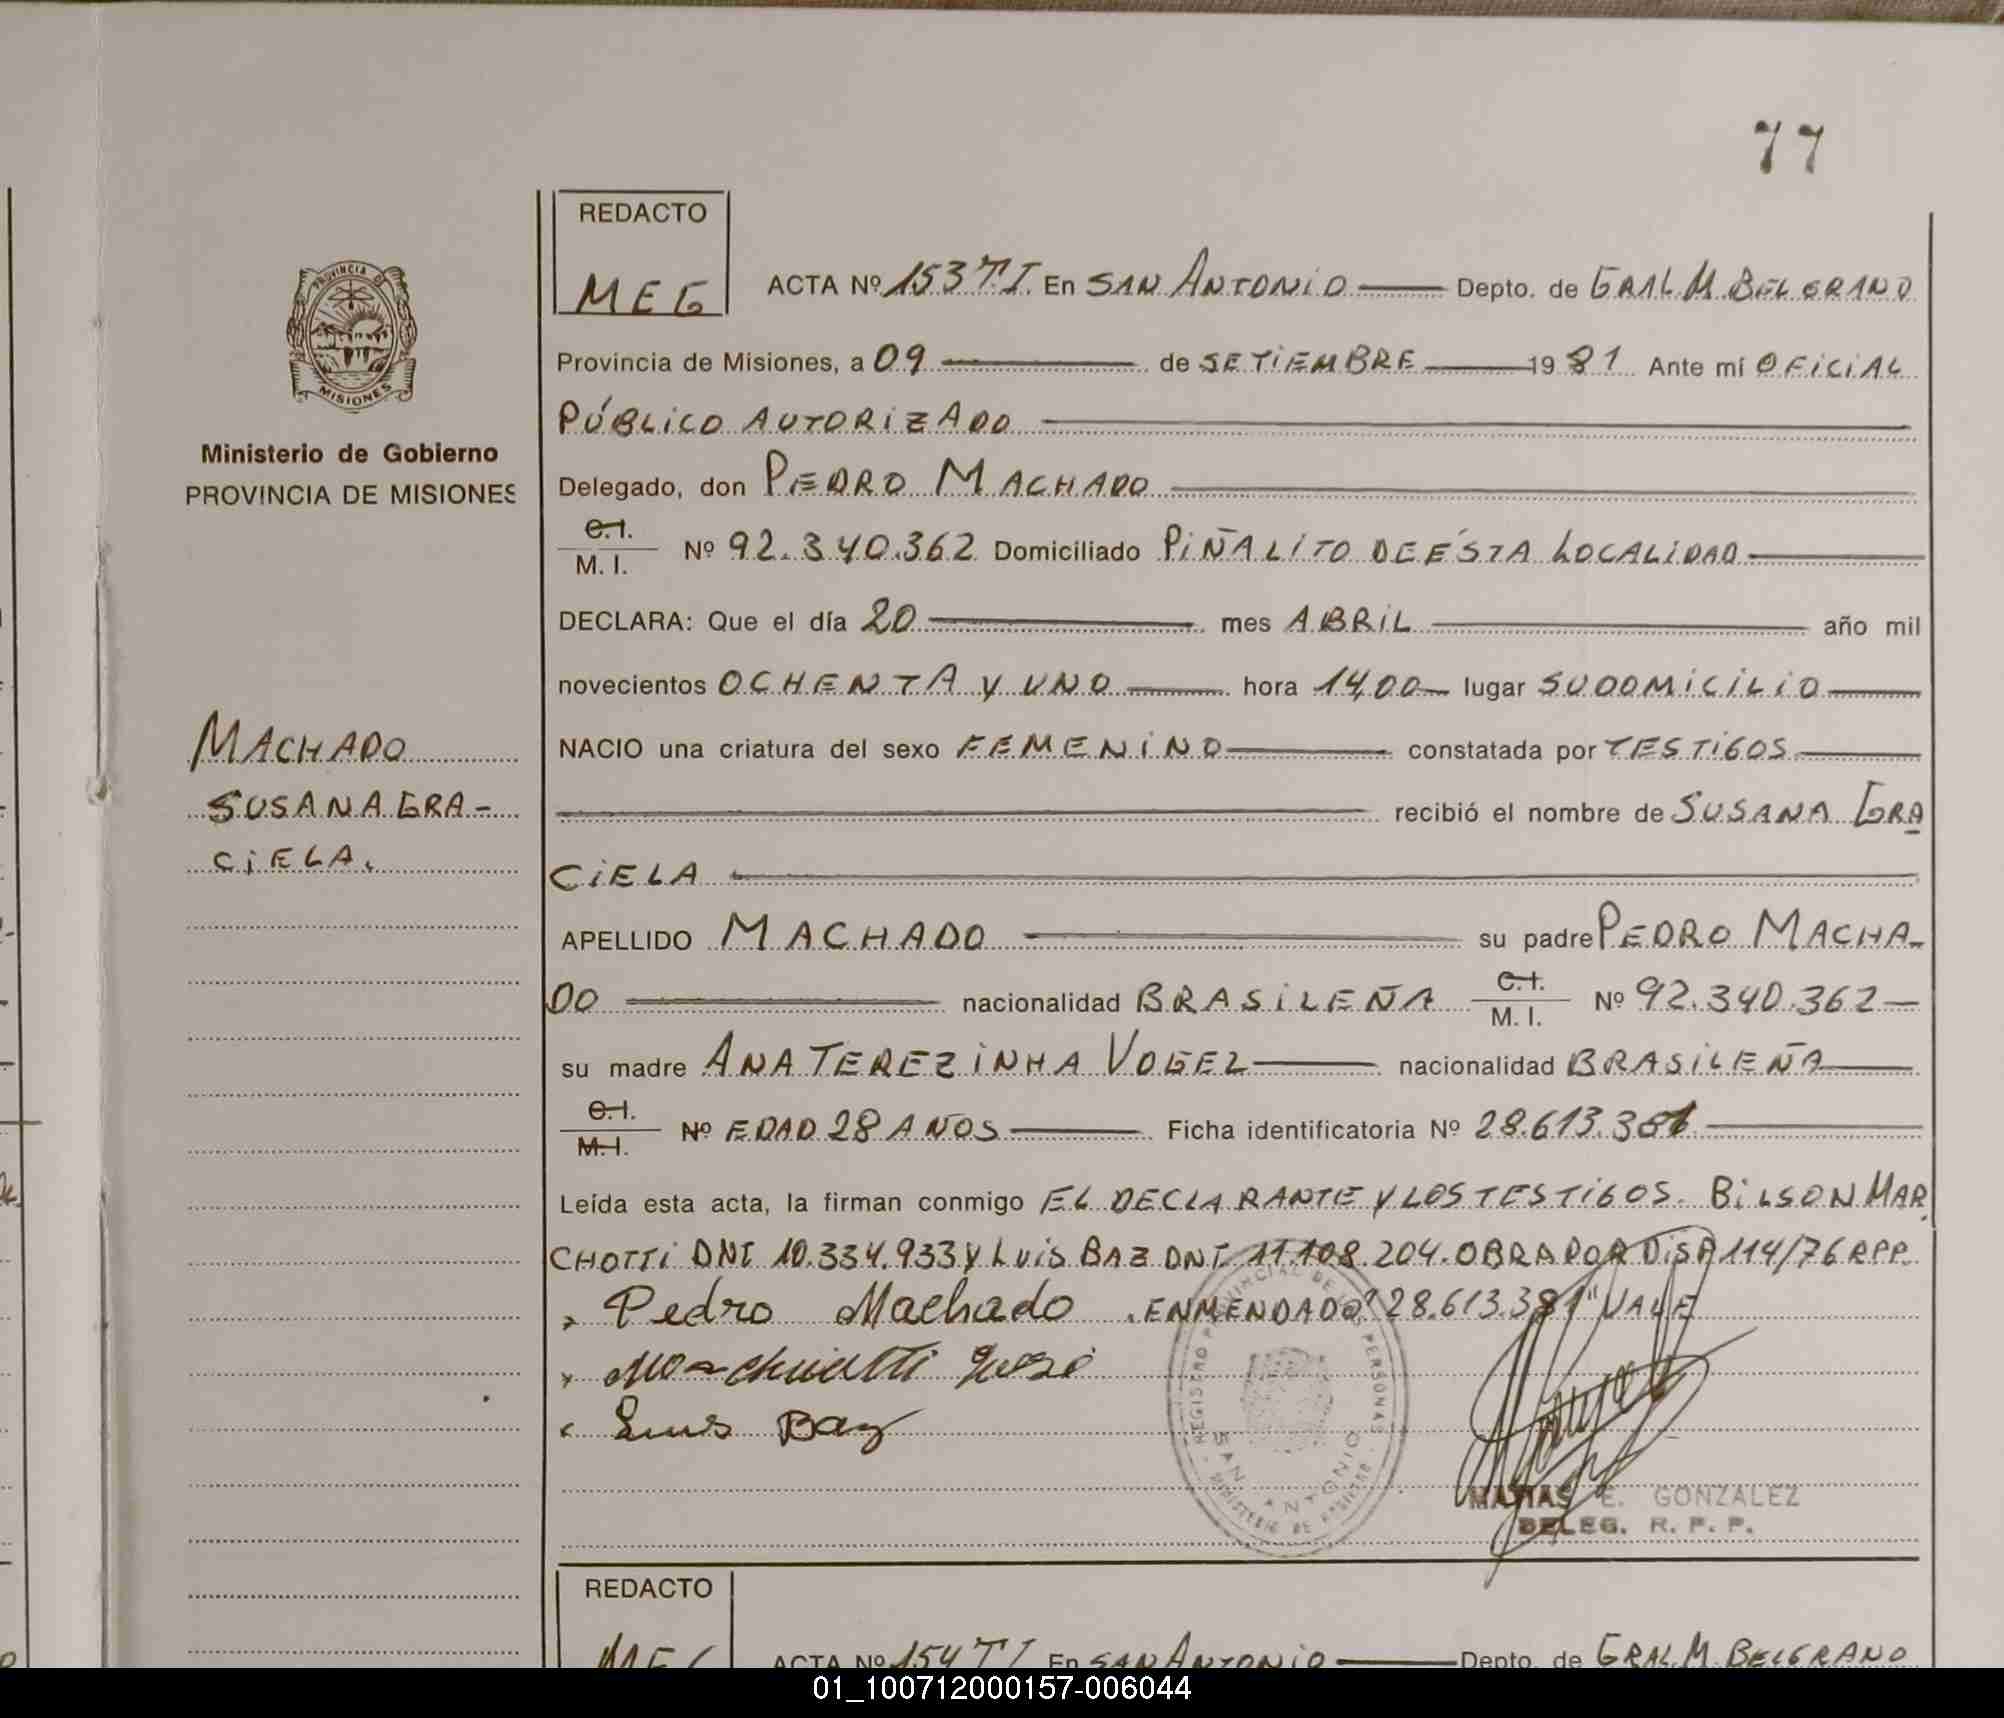 77
REDACTO
MEG
ACTA Nº 153 TI. En SAN ANTONIO Depto. de GRAL M. BELGRANO
Provincia de Misiones, a 09 de SETIEMBRE 19 81 Ante mí OFICIAL
PÚBLICO AUTORIZADO
Delegado, don PEDRO MACHADO
C.I.
M. I. Nº 92.340.362 Domiciliado PIÑALITO DE ÉSTA LOCALIDAD
DECLARA: Que el día 20 mes ABRIL año mil
novecientos OCHENTA Y UNO hora 14,00 lugar SU DOMICILIO
NACIO una criatura del sexo FEMENINO constatada por TESTIGOS
recibió el nombre de SUSANA GRA
CIELA
APELLIDO MACHADO su padre PEDRO MACHA-
DO nacionalidad BRASILEÑA C.I. M. I. Nº 92.340.362
su madre ANA TEREZINHA VOGEL nacionalidad BRASILEÑA
C.I.
M.I. Nº EDAD 28 AÑOS Ficha identificatoria Nº 28.613.381
Leída esta acta, la firman conmigo EL DECLARANTE Y LOS TESTIGOS. BILSON MAR
CHOTTI DNI 10.334.933 Y LUIS BAZ DNI 11.108.204. OBRADOR DISP 114/76 RPP.
Pedro Machado . ENMENDADO "28.613.381" VALE
Luis Baz
REGISTRO PROVINCIAL DE LAS PERSONAS
SAN ANTONIO
MATIAS E. GONZALEZ
DELEG. R. P. P.
PROVINCIA DE
MISIONES
Ministerio de Gobierno
PROVINCIA DE MISIONES
MACHADO
SUSANA GRA-
CIELA.
REDACTO
MEG
ACTA Nº 154 TI En SAN ANTONIO Depto. de GRAL. M. BELGRANO
01_100712000157-006044